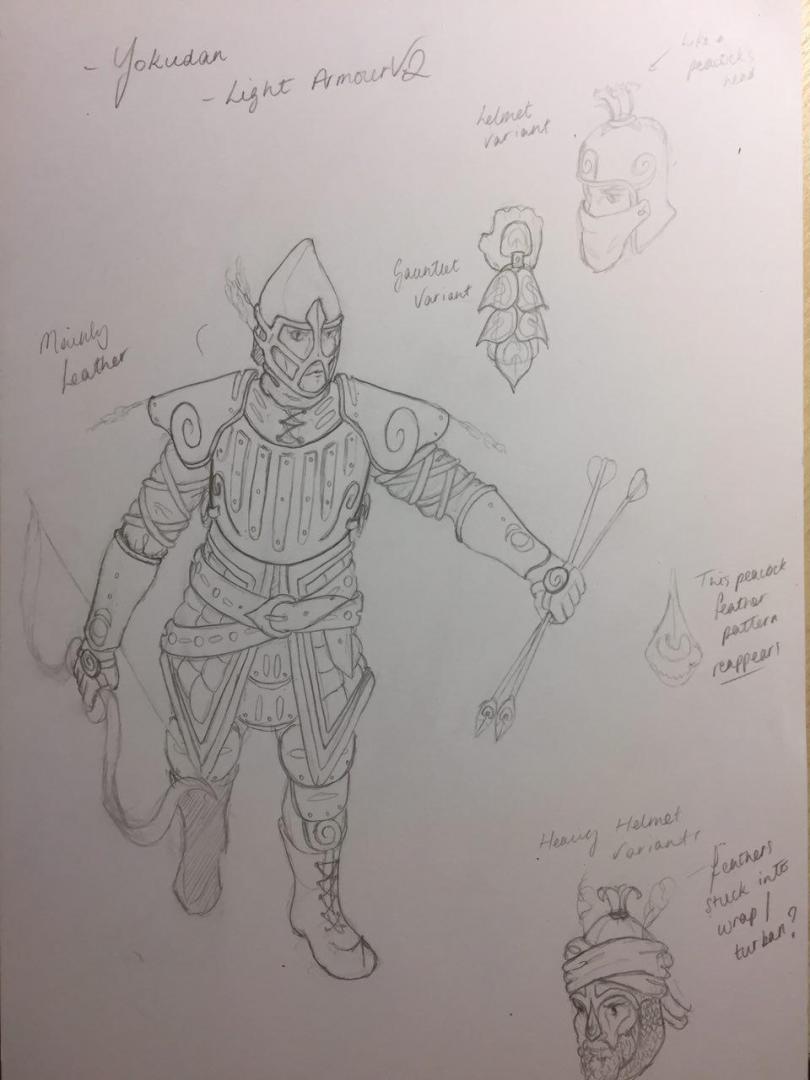 - Yokudan
- Light Armour V2
Like a
peacock's
head
Helmet
variant
Gauntlet
Variant
Mainly
Leather
This peacock
feather
pattern
reappears
Heavy Helmet
Variant
feathers
stuck into
wrap /
turban?